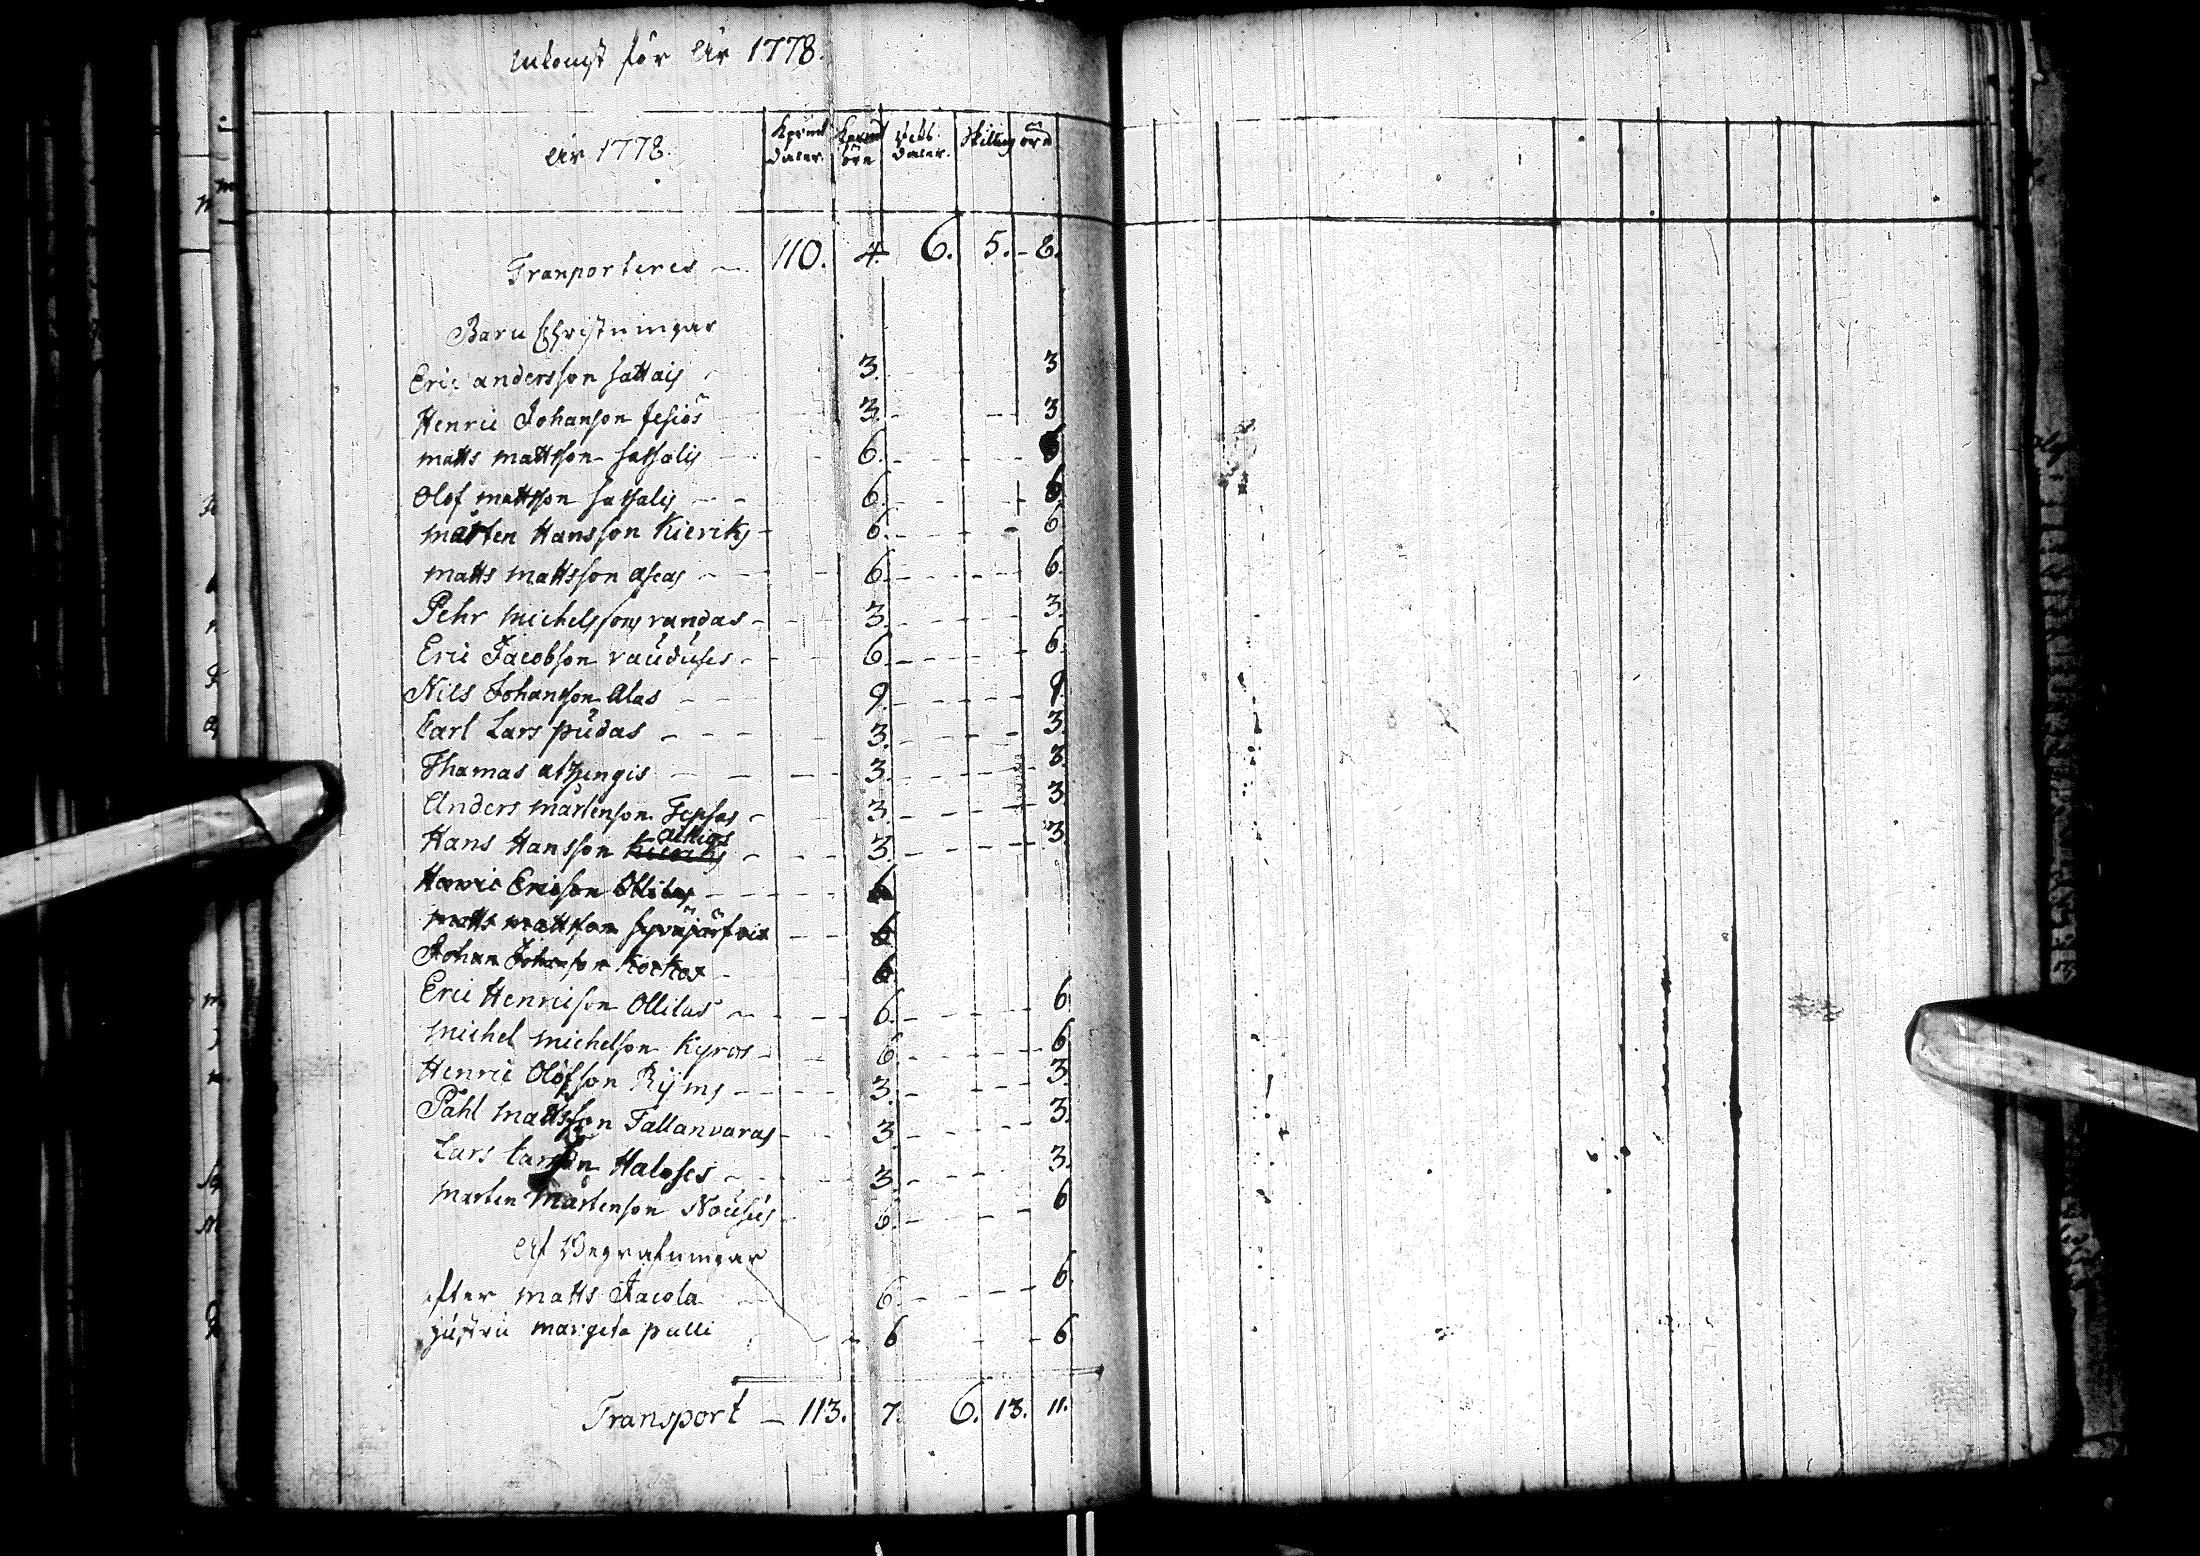 Inkomst för År 1778.
År 1778. Kpmt daler. Kpmt öre Riks daler. Skilling öre
Tranporteres — 110. 4. 6. 5. - 8.
Barn Christningar
Eric andersson sattais 3. 3
Henric Johanson Jesiös 3. 3
matts mattsson 6.
Olof mattsson 6. 6
mårten Hansson Kieriks 6. 6
matts mattsson aseas 6. 6.
Pehr michelssons randas 3. 3.
Eric Jacobson vaúdúses 6. 6.
Nils Johansson Alas 9. 9
Carl Lars púdas 3. 3.
Thomas 3. 3.
Anders mårtenson Tepsas 3. 3
Hans Hansson Kieriks alkigs 3. 3
Henric Ericson Ollilas 6
matts mattsson 6
Johan Johansson Korkos 6
Eric Henricson Ollilas 6. 6
michel michelson Kyros 6. 6
Henric Olofsson Rijms 3. 3.
Påhl mattsson Tallanvaras 3. 3.
Lars Larsson Haloses 3. 3.
mårten mårtenson Noúsús 6. 6
Af Begrafningar
efter matts Jacola 6. 6.
margeta pulli 6 6
Transport — 113. 7. 6. 13. 11.